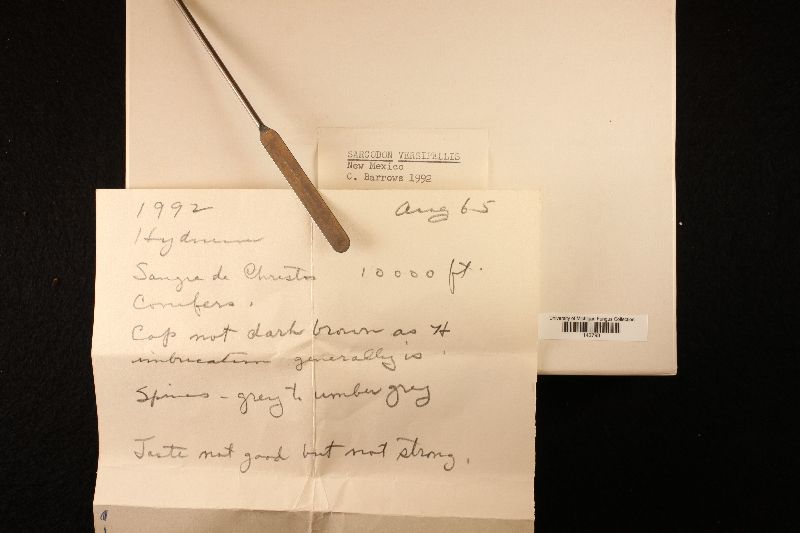 SARCODON VERSIPELLIS
New Mexico
C. Barrows 1992
1992 Aug 65
Hydnum
Sangre de Christos 10000 ft.
Conifers.
Cap not dark brown as H
imbricatum generally is.
Spines - grey to umber grey
Taste not good but not strong.
University of Michigan Fungus Collection